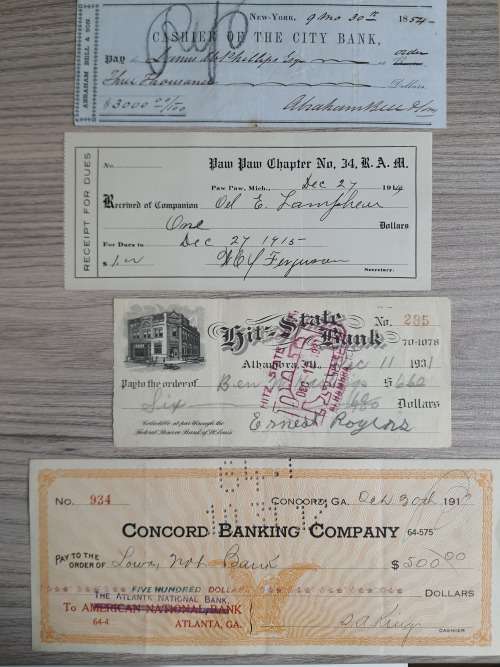 ABRAHAM BELL & SON.
New-York, 9 mo 30th 1854
CASHIER OF THE CITY BANK,
Pay James W Phillips Esqr or order
Three Thousand Dollars
$3000 00/100 Abraham Bell & Son
RECEIPT FOR DUES
No. Paw Paw Chapter No. 34, R. A. M.
Paw Paw, Mich., Dec 27 191
Received of Companion Oel E. Lamphear
One Dollars
For Dues to Dec 27 1915
$1.00 Ferguson
Secretary.
Hitz State Bank
No. 285
70-1078
Alhambra, Ill., Dec 11 1931
Pay to the order of Ben $6
Six Dollars
Collectible at par through the
Federal Reserve Bank of St. Louis
Ernest Rogers
No. 934 Concord, GA. Oct 30th 191
CONCORD BANKING COMPANY 64-575
PAY TO THE
ORDER OF Lowry Nat Bank $500.00
FIVE HUNDRED DOLLARS DOLLARS
THE ATLANTA NATIONAL BANK
To AMERICAN NATIONAL BANK
64-4 ATLANTA, GA.
S A King
CASHIER